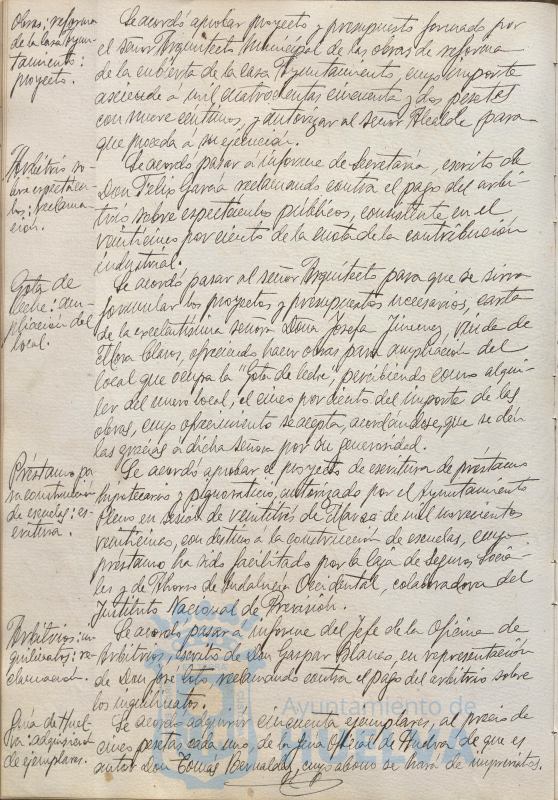 Obras; reforma
de la casa Ayun-
tamiento:
proyecto.
Se acordó aprobar proyecto y presupuesto formado por
el señor Arquitecto Municipal de las obras de reforma
de la cubierta de la casa Ayuntamiento, cuyo importe
asciende á mil cuatrocientas cincuenta y dos pesetas
con nueve centimos, y autorizar al señor Alcalde para
que proceda a su ejecución.
Arbitrio so-
bre espectácu-
los: reclama-
ción.
Se acordó pasar a informe de Secretaría, escrito de
Don Felix García reclamando contra el pago del arbi-
trio sobre espectáculos públicos, consistente en el
veinticinco por ciento de la cuota de la contribución
industrial.
Gota de
leche: am-
pliación del
local.
Se acordó pasar al señor Arquitecto para que se sirva
formular los proyectos y presupuestos necesarios, carta
de la excelentísima señora Doña Josefa Jimenez, viuda de
Mora Claros, ofreciendo hacer obras para ampliación del
local que ocupa la "Gota de leche", percibiendo como alqui-
ler del nuevo local, el cinco por ciento del importe de las
obras, cuyo ofrecimiento se acepta, acordándose, que se den
las gracias á dicha señora por su generosidad.
Préstamo pa-
ra construcción
de escuelas: es-
critura.
Se acordó aprobar el proyecto de escritura de préstamo
hipotecario y pignoraticio, autorizado por el Ayuntamiento
Pleno en sesión de veintitrés de Marzo de mil novecientos
veinticinco, con destino a la construcción de escuelas, cuyo
préstamo ha sido facilitado por la Caja de Seguros Socia-
les y de Ahorro de Andalucía Occidental, colaboradora del
Instituto Nacional de Previsión.
Arbitrios: in-
quilinatos: re-
clamación.
Se acordó pasar a informe del Jefe de la Oficina de
Arbitrios, escrito de Don Gaspar Blanco, en representación
de Don José reclamando contra el pago del arbitrio sobre
los inquilinatos.
Guía de Huel-
va: adquisición
de ejemplares.
Se acordó adquirir cincuenta ejemplares, al precio de
cinco pesetas cada uno, de la Guía Oficial de Huelva de que es
autor Don Tomas Bernaldez, cuyo abono se hará de imprevistos.
Ayuntamiento de
HUELVA